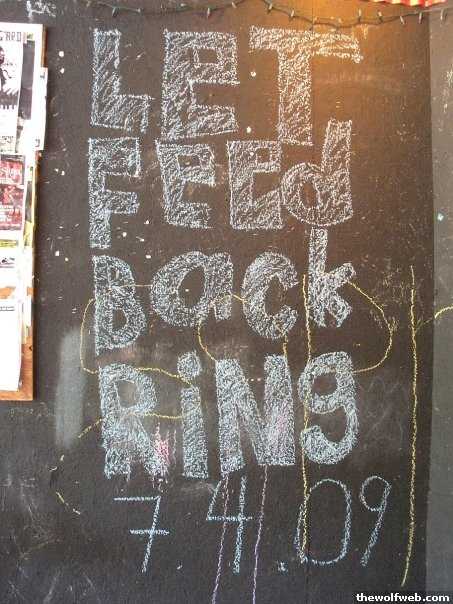 LET
FEEd
Back
RiNg
7 4.09
thewolfweb.com